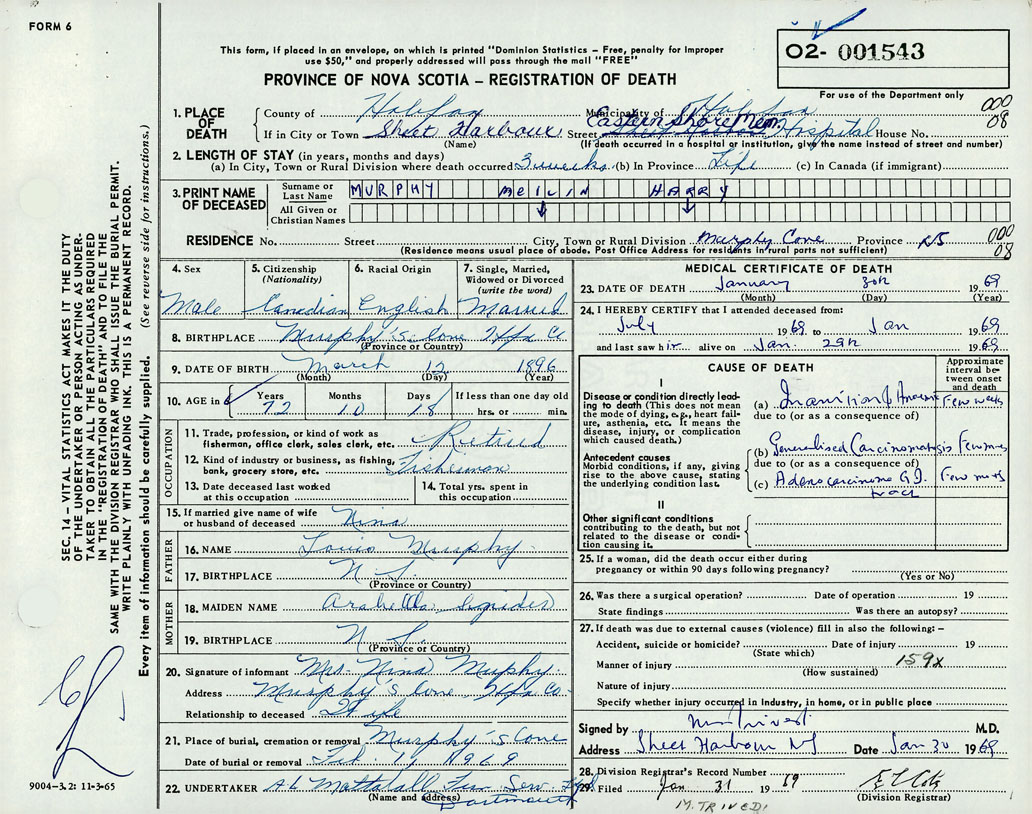 FORM 6
This form, if placed in an envelope, on which is printed "Dominion Statistics – Free, penalty for improper
use $50," and properly addressed will pass through the mail "FREE"
PROVINCE OF NOVA SCOTIA – REGISTRATION OF DEATH
02- 001543
For use of the Department only
000
08
1. PLACE OF DEATH County of Halifax Municipality of Halifax
If in City or Town Sheet Harbour Street Eastern Shore Mem. Hospital House No.
(Name) (If death occurred in a hospital or institution, give the name instead of street and number)
2. LENGTH OF STAY (in years, months and days)
(a) In City, Town or Rural Division where death occurred 3 weeks (b) In Province Life (c) In Canada (if immigrant)
3. PRINT NAME OF DECEASED Surname or Last Name MURPHY MELVIN HARRY
All Given or Christian Names
RESIDENCE No. Street City, Town or Rural Division Murphy Cove Province NS
000
08
(Residence means usual place of abode. Post Office Address for residents in rural parts not sufficient)
4. Sex Male
5. Citizenship (Nationality) Canadian
6. Racial Origin English
7. Single, Married, Widowed or Divorced (write the word) Married
8. BIRTHPLACE Murphy's Cove Hfx Co
(Province or Country)
9. DATE OF BIRTH March 12 1896
(Month) (Day) (Year)
10. AGE in Years 72 Months 10 Days 18 If less than one day old hrs. or min.
OCCUPATION
11. Trade, profession, or kind of work as fisherman, office clerk, sales clerk, etc. Retired
12. Kind of industry or business, as fishing, bank, grocery store, etc. Fisherman
13. Date deceased last worked at this occupation
14. Total yrs. spent in this occupation
15. If married give name of wife or husband of deceased Nina
FATHER
16. NAME Louis Murphy
17. BIRTHPLACE N.S.
(Province or Country)
MOTHER
18. MAIDEN NAME Arabella
19. BIRTHPLACE N.S.
(Province or Country)
20. Signature of informant Mrs. Nina Murphy
Address Murphy's Cove Hfx Co.
Relationship to deceased Wife
21. Place of burial, cremation or removal Murphy's Cove
Date of burial or removal Feb. 1, 1969
22. UNDERTAKER A L Mattatall Fun Serv
(Name and address) Dartmouth
MEDICAL CERTIFICATE OF DEATH
23. DATE OF DEATH January 30th 1969
(Month) (Day) (Year)
24. I HEREBY CERTIFY that I attended deceased from:
July 1968 to Jan 1969
and last saw him alive on Jan. 29th 1969
CAUSE OF DEATH
Approximate interval between onset and death
I
Disease or condition directly leading to death (This does not mean the mode of dying, e.g., heart failure, asthenia, etc. It means the disease, injury, or complication which caused death.)
(a) Inanition & Anaemia Few weeks
due to (or as a consequence of)
Antecedent causes
Morbid conditions, if any, giving rise to the above cause, stating the underlying condition last.
(b) Generalised Carcinomatosis Few mos
due to (or as a consequence of)
(c) Adenocarcinoma G.I. tract Few mos
II
Other significant conditions contributing to the death, but not related to the disease or condition causing it.
25. If a woman, did the death occur either during pregnancy or within 90 days following pregnancy?
(Yes or No)
26. Was there a surgical operation? Date of operation 19
State findings Was there an autopsy?
27. If death was due to external causes (violence) fill in also the following: –
Accident, suicide or homicide? Date of injury 19
(State which)
Manner of injury 159X
(How sustained)
Nature of injury
Specify whether injury occurred in Industry, in home, or in public place
Signed by M Trivedi M.D.
Address Sheet Harbour NS Date Jan 30 1969
28. Division Registrar's Record Number
29. Filed Jan 31 1969
(Division Registrar)
M. TRIVEDI
9004–3.2: 11-3-65
SEC. 14 – VITAL STATISTICS ACT MAKES IT THE DUTY
OF THE UNDERTAKER OR PERSON ACTING AS UNDER-
TAKER TO OBTAIN ALL THE PARTICULARS REQUIRED
IN THE "REGISTRATION OF DEATH" AND TO FILE THE
SAME WITH THE DIVISION REGISTRAR WHO SHALL ISSUE THE BURIAL PERMIT.
WRITE PLAINLY WITH UNFADING INK. THIS IS A PERMANENT RECORD.
Every item of information should be carefully supplied. (See reverse side for instructions.)